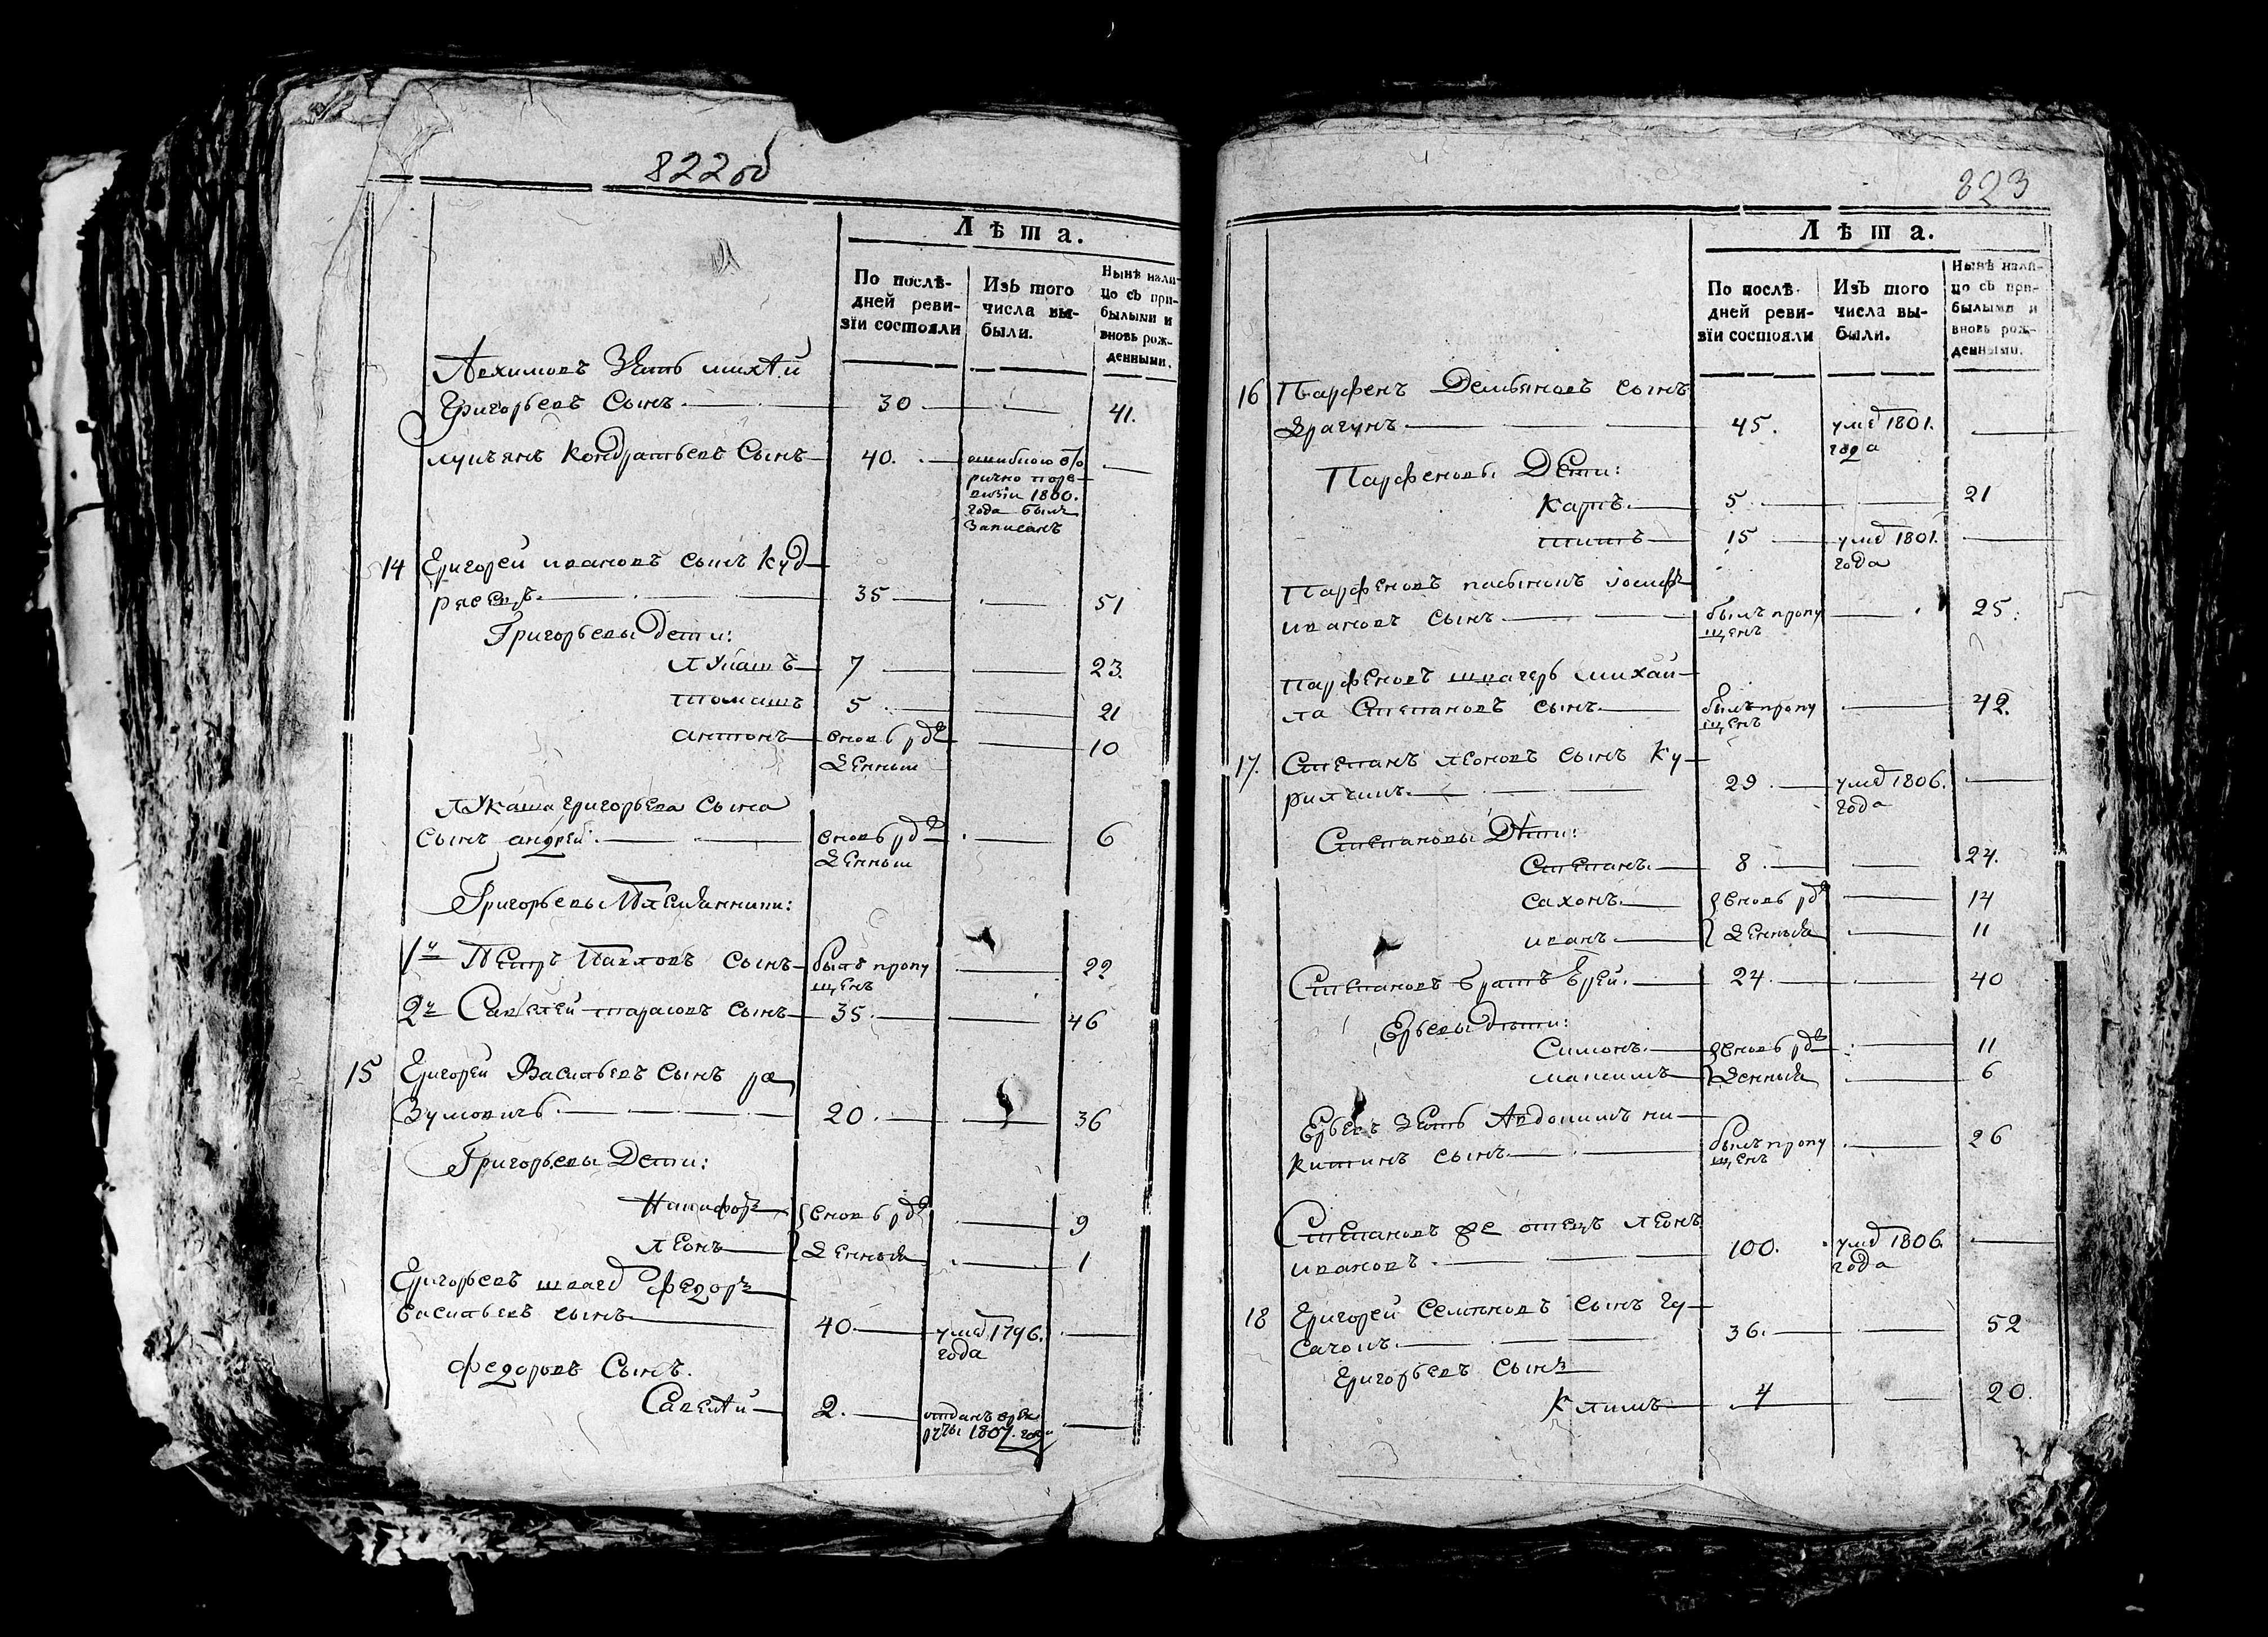 822 об
Лѣта.
По послѣ-
дней реви-
зїи состояли
Изъ того
числа вы-
были.
Нынѣ нали-
цо съ при-
былыми и
вновь рож-
денными.
Архиповъ Зять михѣй
Григорьевъ Сынъ 30 41.
лукьянъ Кондратьевъ Сынъ 40.
ошибкою вто
рично по ре-
визіи 1800.
года былъ
Записанъ
14 Григорей ивановъ сынъ Куд
рясевъ. 35 51
Григорьевы Дети:
лукашъ 7 23.
томашъ 5 21
антонъ вновь рож
денный 10
лукаша григорьева сына
сынъ андрей. вновь рож
денный 6
Григорьевы Племянники:
1й Петръ Павловъ сынъ былъ пропу
щенъ 22
2й Савелей тарасовъ сынъ 35. 46
15 Григорей Васильевъ сынъ ра
зумовичь. 20. 36
Григорьевы Дети:
Никифоръ вновь рож 9
леонъ денныя 1
Григорьевъ швагер Федоръ
васильевъ сынъ 40. умер 1796.
года
федоровъ Сынъ.
Савелѣй 2. отданъ в рек
руты 1807. года
823
Лѣта.
По послѣ-
дней реви-
зїи состояли
Изъ того
числа вы-
были.
Нынѣ нали-
цо съ при-
былыми и
вновь рож-
денными.
16 Парфенъ Демьяновъ сынъ
драгунъ. 45. умер 1801.
года
Парфеновы Дети:
Карпъ. 5 21
титъ 15 умер 1801.
года
Парфеновъ пасынокъ іосифъ
ивановъ сынъ. былъ пропу
щенъ 25.
парфеновъ швагеръ михай-
ла Степановъ сынъ. былъ пропу
щенъ 42.
17. Степанъ леоновъ сынъ Ку-
рилчикъ. 29. умер 1806.
года
Степановы Дѣти:
Степанъ. 8. 24.
сахонъ. вновь рож 14
иванъ. денныя 11
Степановъ братъ Ерей. 24. 40
Ерьевы дѣти:
Симонъ. вновь рож 11
максимъ денныя 6
Ерьевъ Зеть Авдокимъ ни-
китинъ сынъ былъ пропу
щенъ 26
Степановъ же отецъ леонъ
ивановъ. 100. умер 1806.
года
18 Григорей Семѣновъ сынъ Гу-
сачокъ. 36. 52
Григорьевъ сынъ
Климъ 4 20.